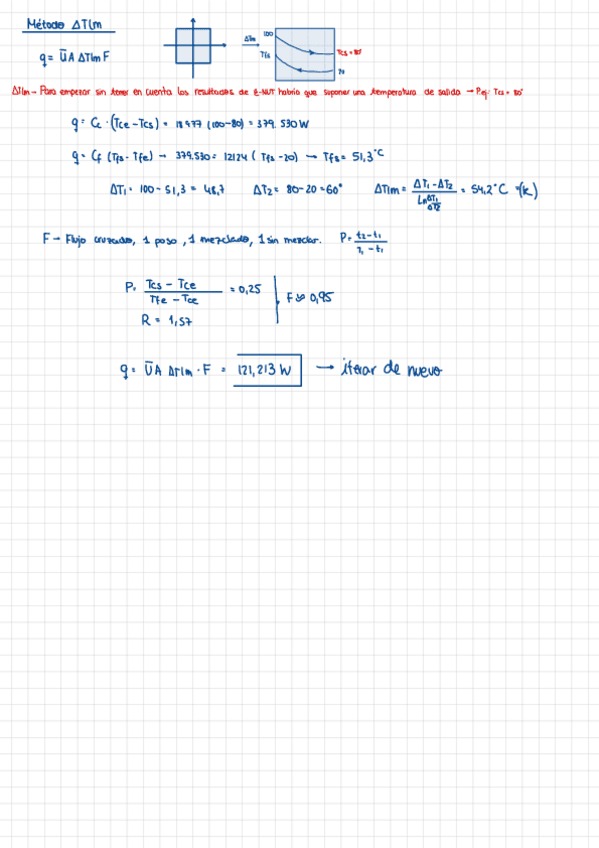 Método ΔTlm
q = ŪA ΔTlm F
ΔTlm
100
Tfs
Tcs = 80°
20
ΔTlm → Para empezar sin tener en cuenta los resultados de E-NUT habría que suponer una temperatura de salida → P.ej: Tcs = 80°
q = Cc · (Tce - Tcs) = 18977 (100-80) = 379.530 W
q = Cf (Tfs - Tfe) → 379.530 = 12124 (Tfs - 20) → Tfs = 51,3°C
ΔT1 = 100 - 51,3 = 48,7 ΔT2 = 80 - 20 = 60° ΔTlm = ΔT1 - ΔT2 / Ln ΔT1/ΔT2 = 54,2°C (K)
F → Flujo cruzado, 1 paso, 1 mezclado, 1 sin mezclar. P = t2-t1 / T1-t1
P = Tcs - Tce / Tfe - Tce = 0,25
F ≈ 0,95
R = 1,57
q = ŪA ΔTlm · F = 121,213 W → iterar de nuevo